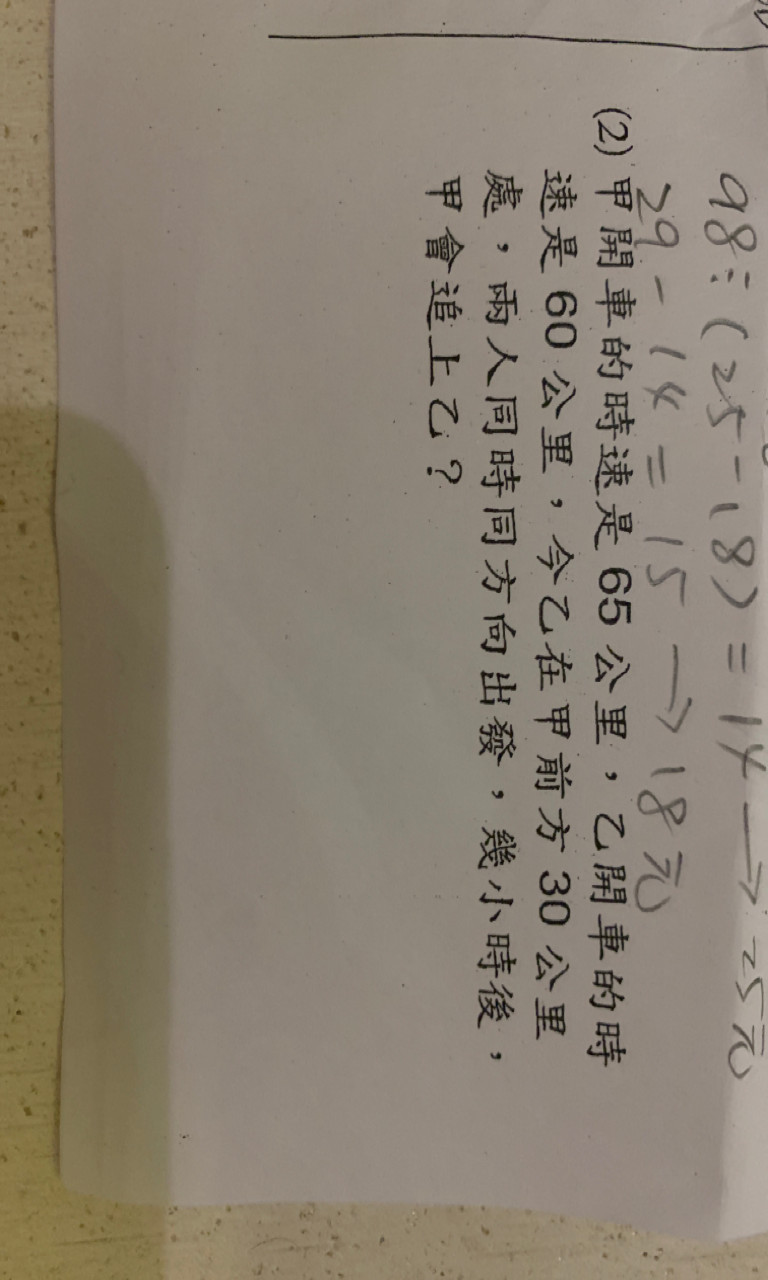 98÷(25-18)=14→25元
29-14=15→18元
(2)甲開車的時速是65公里，乙開車的時
速是60公里，今乙在甲前方30公里
處，兩人同時同方向出發，幾小時後，
甲會追上乙？